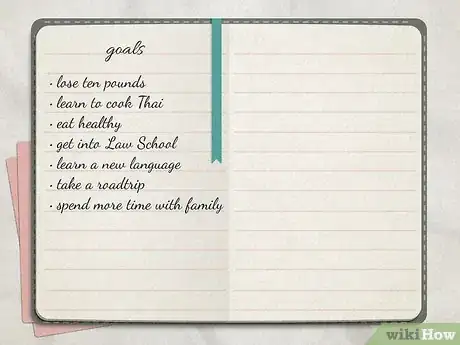 goals
• lose ten pounds
• learn to cook Thai
• eat healthy
• get into Law School
• learn a new language
• take a roadtrip
• spend more time with family
wikiHow